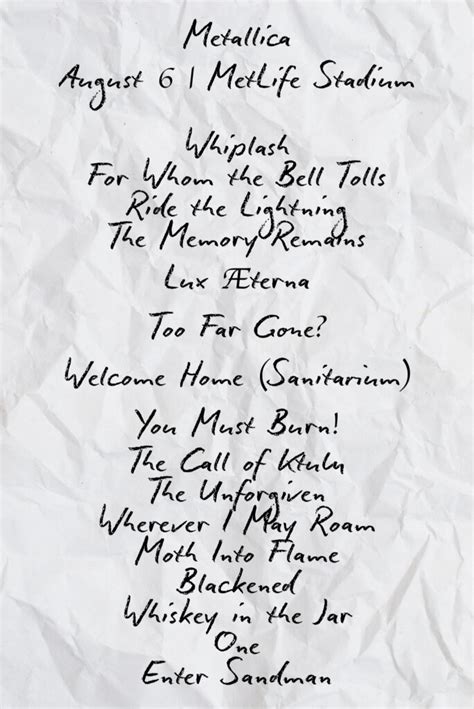 Metallica
August 6 | MetLife Stadium
Whiplash
For Whom the Bell Tolls
Ride the Lightning
The Memory Remains
Lux Æterna
Too Far Gone?
Welcome Home (Sanitarium)
You Must Burn!
The Call of Ktulu
The Unforgiven
Wherever I May Roam
Moth Into Flame
Blackened
Whiskey in the Jar
One
Enter Sandman